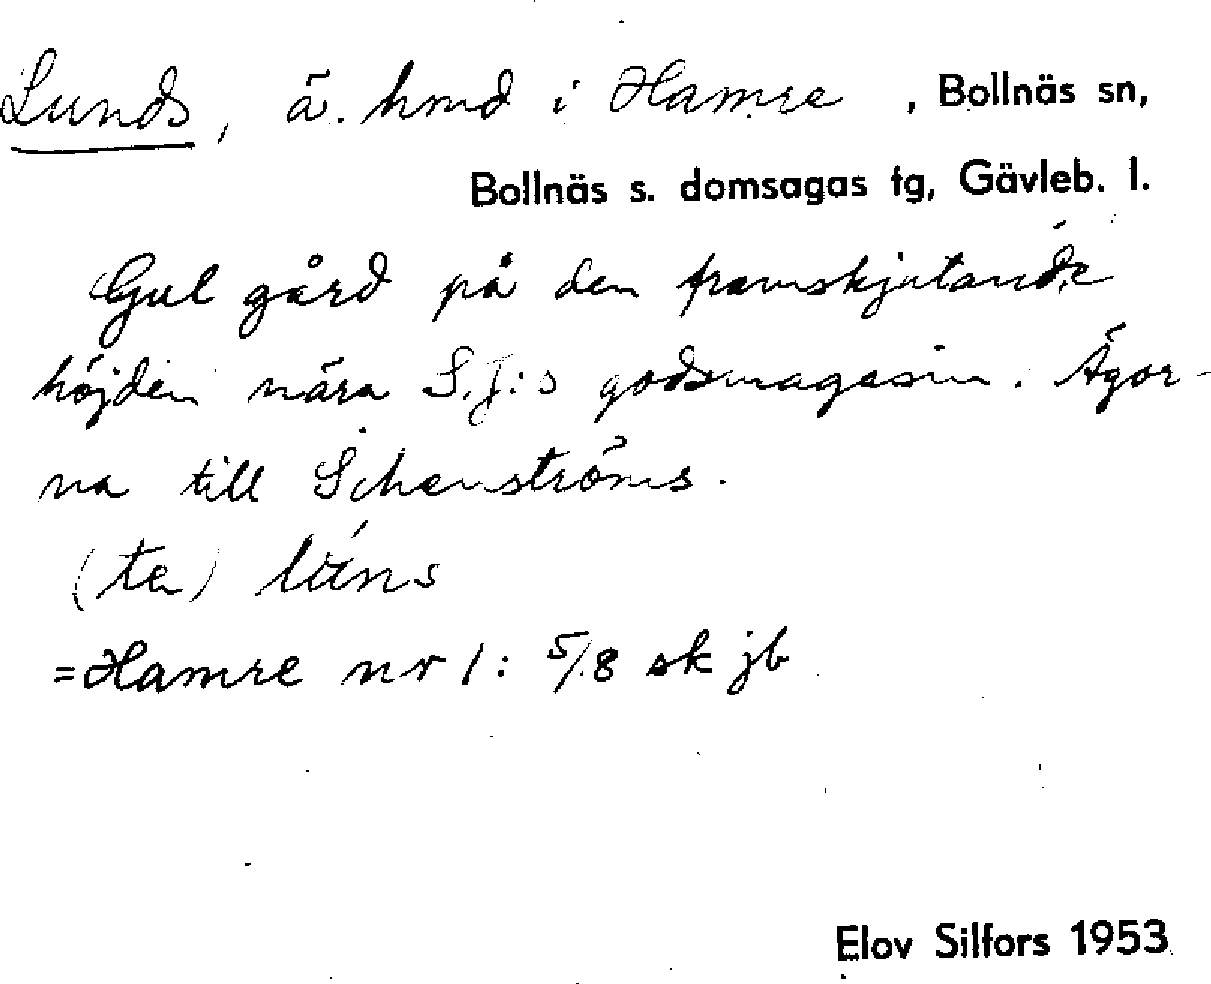 Lunds, ä. hmd i Hamre, Bollnäs sn,
Bollnäs s. domsagas tg, Gävleb. l.
Gul gård på den framskjutande
höjden nära S.J:s godsmagasin. Ägor-
na till Schenströms.
(ta)
=Hamre nr 1: 5/8 sk jb
Elov Silfors 1953